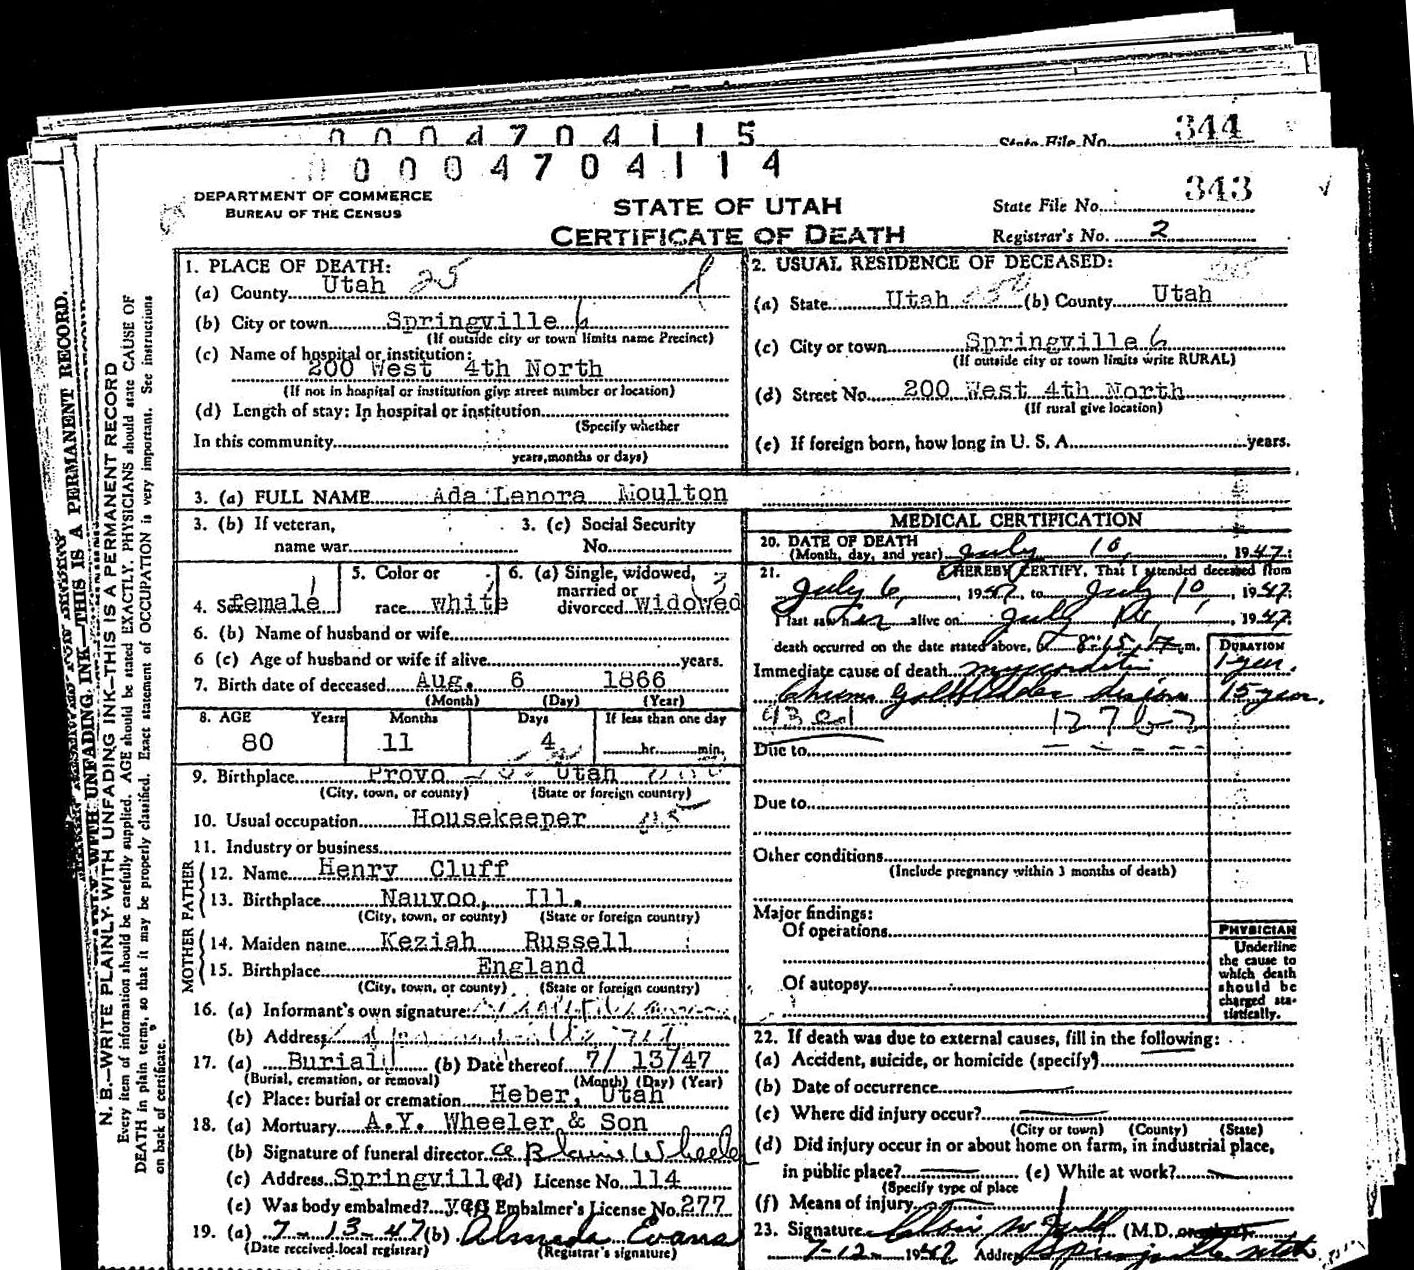 0 0 0 4 7 0 4 1 1 5
State File No. 344
0 0 0 4 7 0 4 1 1 4
DEPARTMENT OF COMMERCE
BUREAU OF THE CENSUS
STATE OF UTAH
CERTIFICATE OF DEATH
State File No. 343
Registrar's No. 2
N. B.—WRITE PLAINLY WITH UNFADING INK—THIS IS A PERMANENT RECORD
Every item of information should be carefully supplied. AGE should be stated EXACTLY. PHYSICIANS should state CAUSE OF
DEATH in plain terms, so that it may be properly classified. Exact statement of OCCUPATION is very important. See instructions
on back of certificate.
1. PLACE OF DEATH:
(a) County Utah 25
(b) City or town Springville 6
(If outside city or town limits name Precinct)
(c) Name of hospital or institution:
200 West 4th North
(If not in hospital or institution give street number or location)
(d) Length of stay: In hospital or institution
(Specify whether
In this community
years, months or days)
2. USUAL RESIDENCE OF DECEASED:
(a) State Utah (b) County Utah
(c) City or town Springville 6
(If outside city or town limits write RURAL)
(d) Street No. 200 West 4th North
(If rural give location)
(e) If foreign born, how long in U. S. A. years.
3. (a) FULL NAME Ada Lenora Moulton
3. (b) If veteran,
name war
3. (c) Social Security
No.
4. Sex female
5. Color or
race white
6. (a) Single, widowed,
married or
divorced widowed
6. (b) Name of husband or wife
6 (c) Age of husband or wife if alive years.
7. Birth date of deceased Aug. 6 1866
(Month) (Day) (Year)
8. AGE Years Months Days If less than one day
80 11 4 hr. min.
9. Birthplace Provo Utah
(City, town, or county) (State or foreign country)
10. Usual occupation Housekeeper
11. Industry or business
FATHER
12. Name Henry Cluff
13. Birthplace Nauvoo, Ill.
(City, town, or county) (State or foreign country)
MOTHER
14. Maiden name Keziah Russell
15. Birthplace England
(City, town, or county) (State or foreign country)
16. (a) Informant's own signature:
(b) Address
17. (a) Burial (b) Date thereof 7/ 13/47
(Burial, cremation, or removal) (Month) (Day) (Year)
(c) Place: burial or cremation Heber, Utah
18. (a) Mortuary A.Y. Wheeler & Son
(b) Signature of funeral director A Blaine Wheeler
(c) Address Springville (d) License No. 114
(e) Was body embalmed? yes Embalmer's License No. 277
19. (a) 7-13-47 (b) Almeda Evans
(Date received local registrar) (Registrar's signature)
MEDICAL CERTIFICATION
20. DATE OF DEATH
(Month, day, and year) July 10, 1947
21. I HEREBY CERTIFY, That I attended deceased from
July 6, 1947 to July 10, 1947
I last saw her alive on July 10, 1947
death occurred on the date stated above, 8:15 P.m.
DURATION
Immediate cause of death myocarditis 1 year.
Chronic Gallbladder disease 15 year.
93 1276-3
Due to
Due to
Other conditions
(Include pregnancy within 3 months of death)
Major findings:
Of operations
Of autopsy
PHYSICIAN
Underline
the cause to
which death
should be
charged sta-
tistically.
22. If death was due to external causes, fill in the following:
(a) Accident, suicide, or homicide (specify)
(b) Date of occurrence
(c) Where did injury occur?
(City or town) (County) (State)
(d) Did injury occur in or about home on farm, in industrial place,
in public place? (e) While at work?
(Specify type of place
(f) Means of injury
23. Signature (M.D. or other)
7-12- 1947 Address Springville Utah